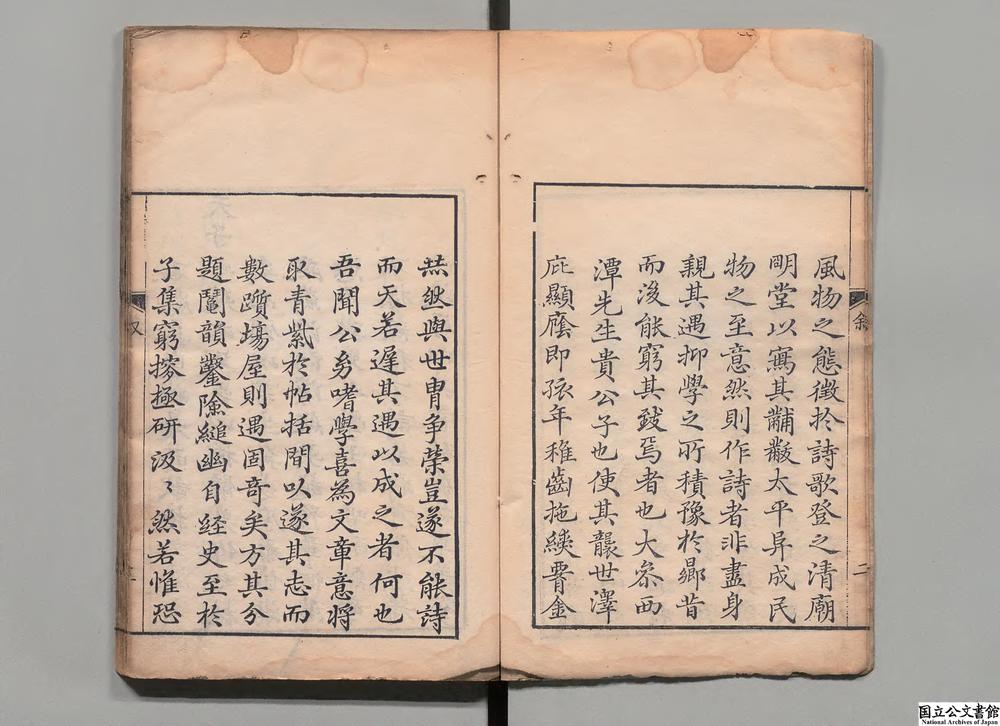 風物之態徵於詩歌登之清廟
明堂以寫其黼黻太平昇成民
物之至意然則作詩者非盡身
親其遇抑學之所積豫於鄉昔
而後能窮其致焉者也大家西
潭先生貴公子也使其襲世澤
庇顯廕即孩年稚齒拖緩響金
燕然與世胄争榮豈遂不能詩
而天若遲其遇以成之者何也
吾聞公㓜嗜學喜為文章意將
取青紫於帖括間以遂其志而
數躓場屋則遇固奇矣方其分
題鬪韻鑿險縋幽自經史至於
子集窮搜極研汲〻然若惟恐
叙
二
国立公文書館
National Archives of Japan